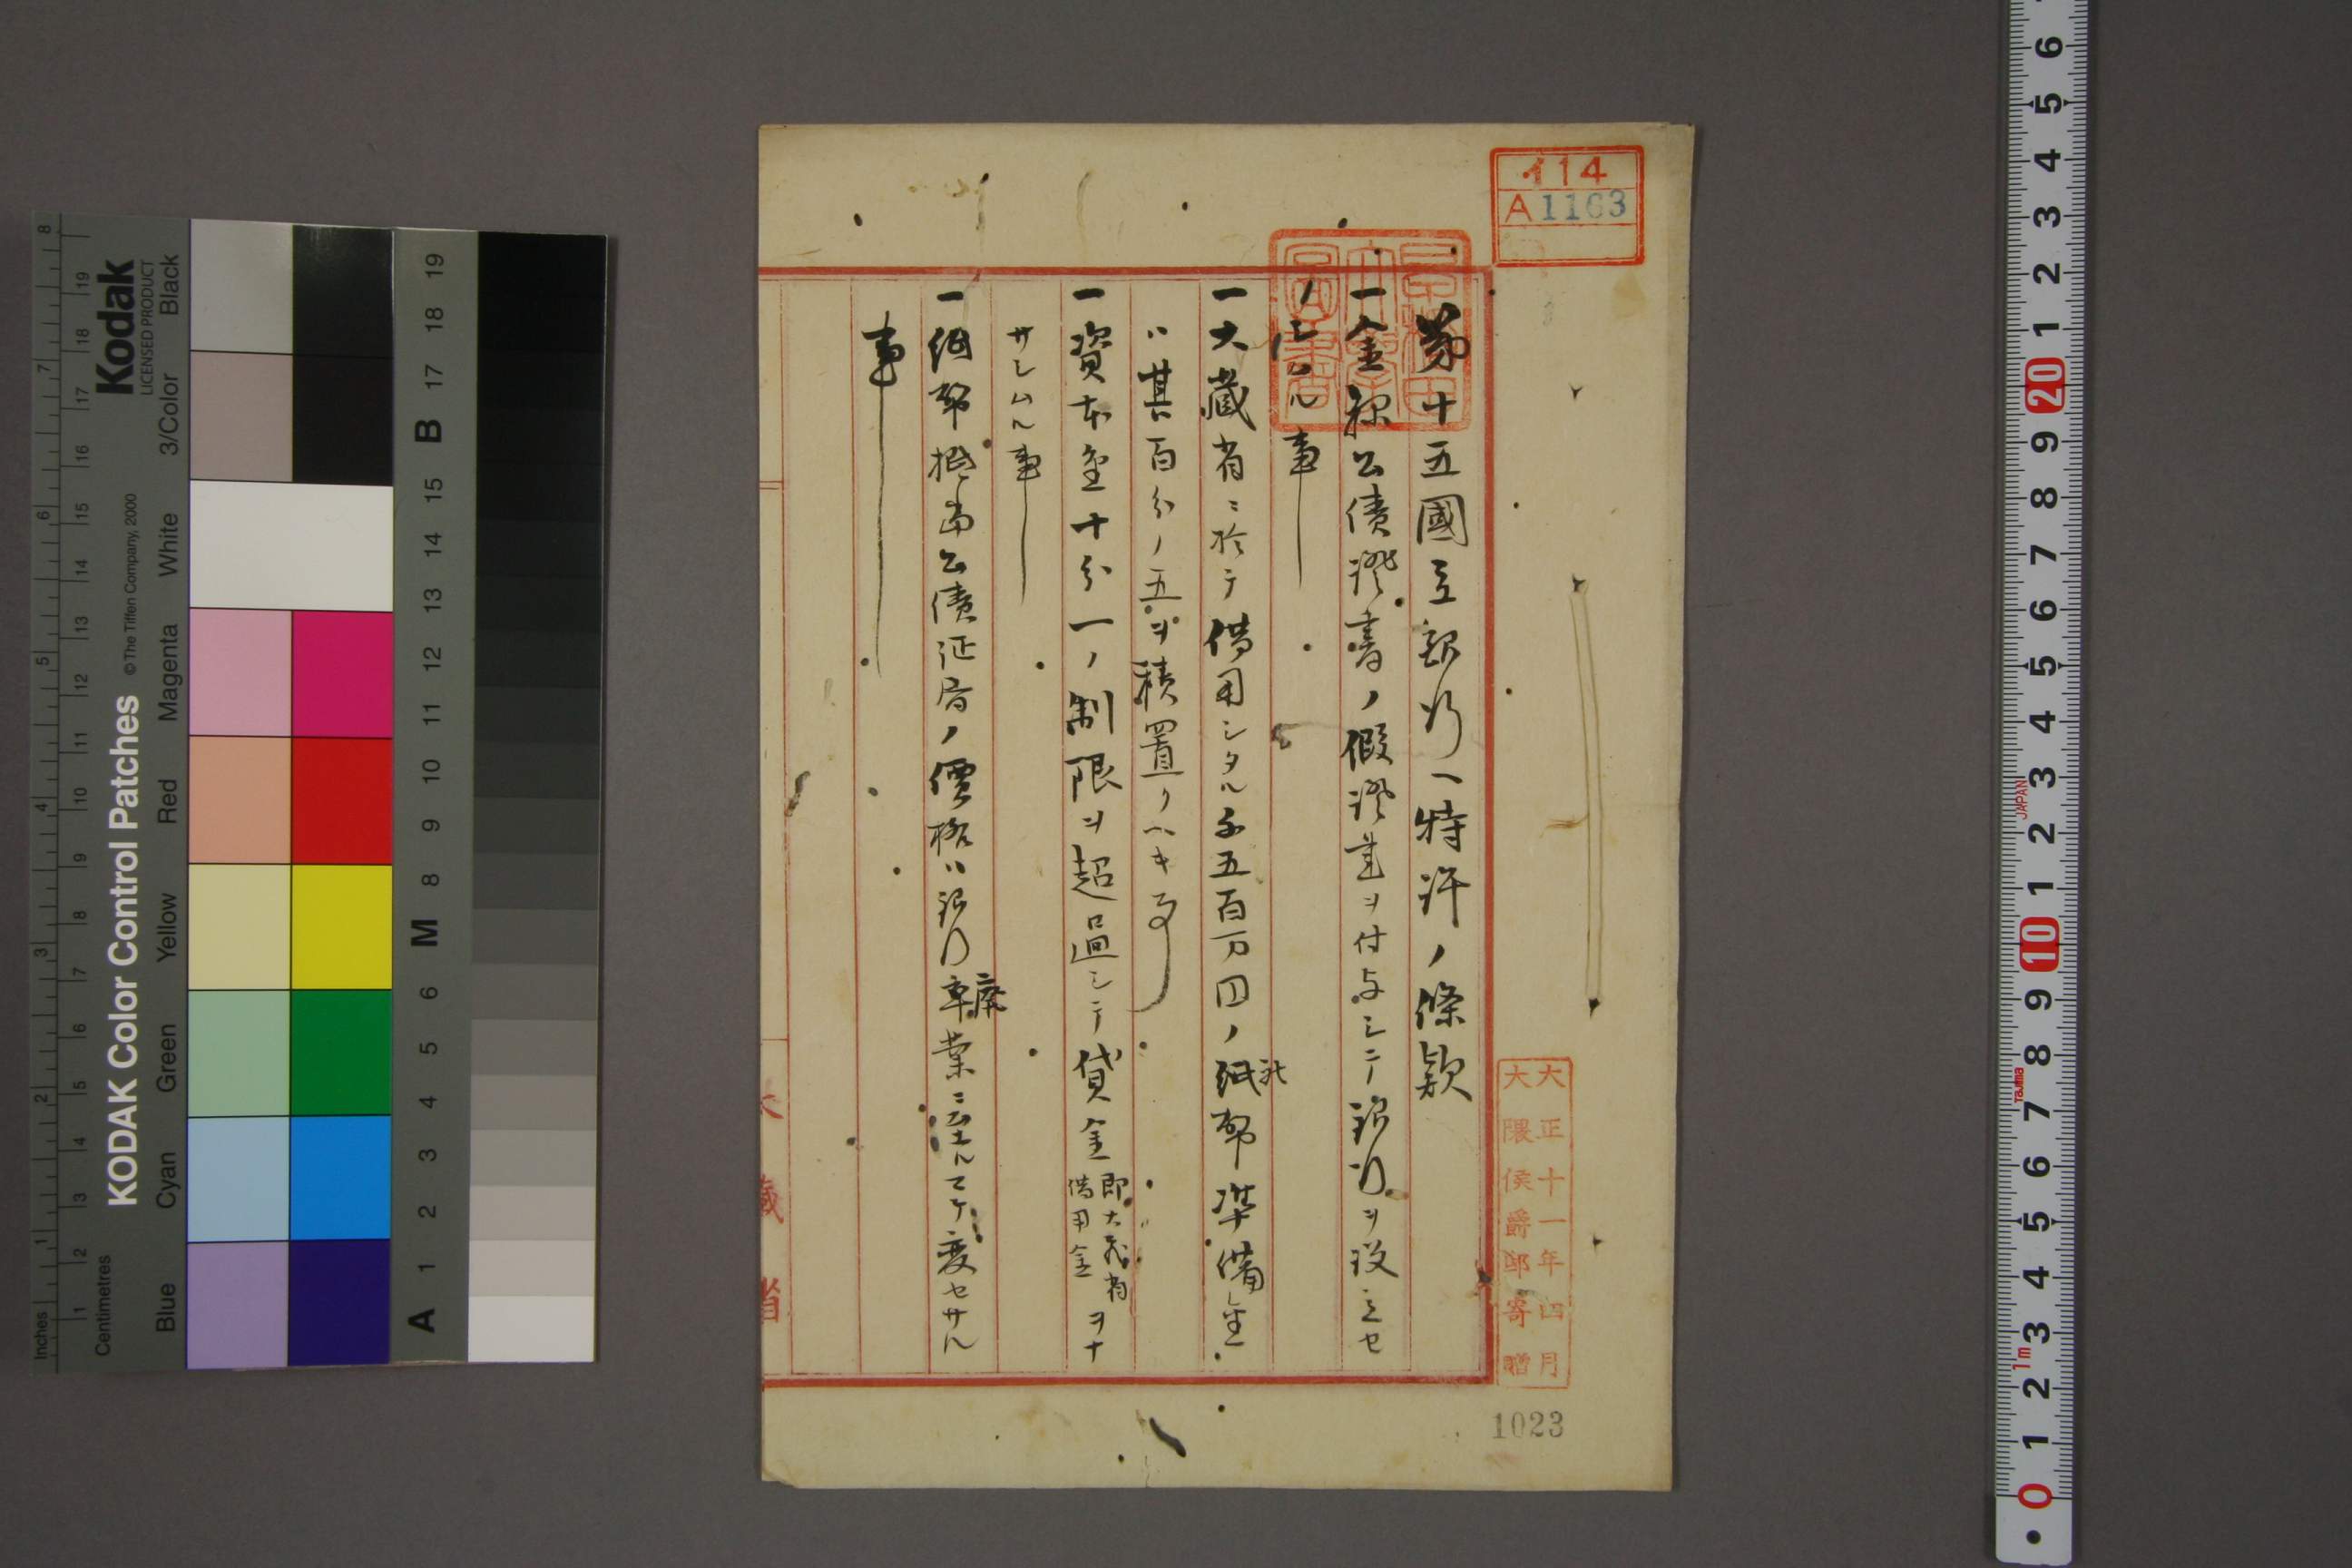 第十五國立銀行ヘ特許ノ條款
一金禄公債證書ノ假證書ヲ付与シテ銀行ヲ設立セ
シムル事
一大蔵省ニ於テ借用シタル千五百万円ノ紙幣準備金
ハ其百分ノ五ヲ積置クヘキ事
一資本金十分一ノ制限ヲ超過シテ貸金即大蔵省借用金ヲナ
サシムル事
一紙幣抵當公債証書ノ價格ハ銀行廃業ニ至ルマテ変セサル
事
大蔵省
114
A1163
早稲田大學圖書
大正十一年四月
大隈侯爵邸寄贈
1023
Kodak
LICENSED PRODUCT
KODAK Color Control Patches
© The Tiffen Company, 2000
Inches
Centimetres
Blue
Cyan
Green
Yellow
Red
Magenta
White
3/Color
Black
1 2 3 4 5 6 7 8
1 2 3 4 5 6 7 8 9 10 11 12 13 14 15 16 17 18 19
A 1 2 3 4 5 6 M 8 9 10 11 12 13 14 15 B 17 18 19
0 1 2 3 4 5 6 7 8 9 10 1 2 3 4 5 6 7 8 9 20 1 2 3 4 5 6
1m
Tajima
JAPAN